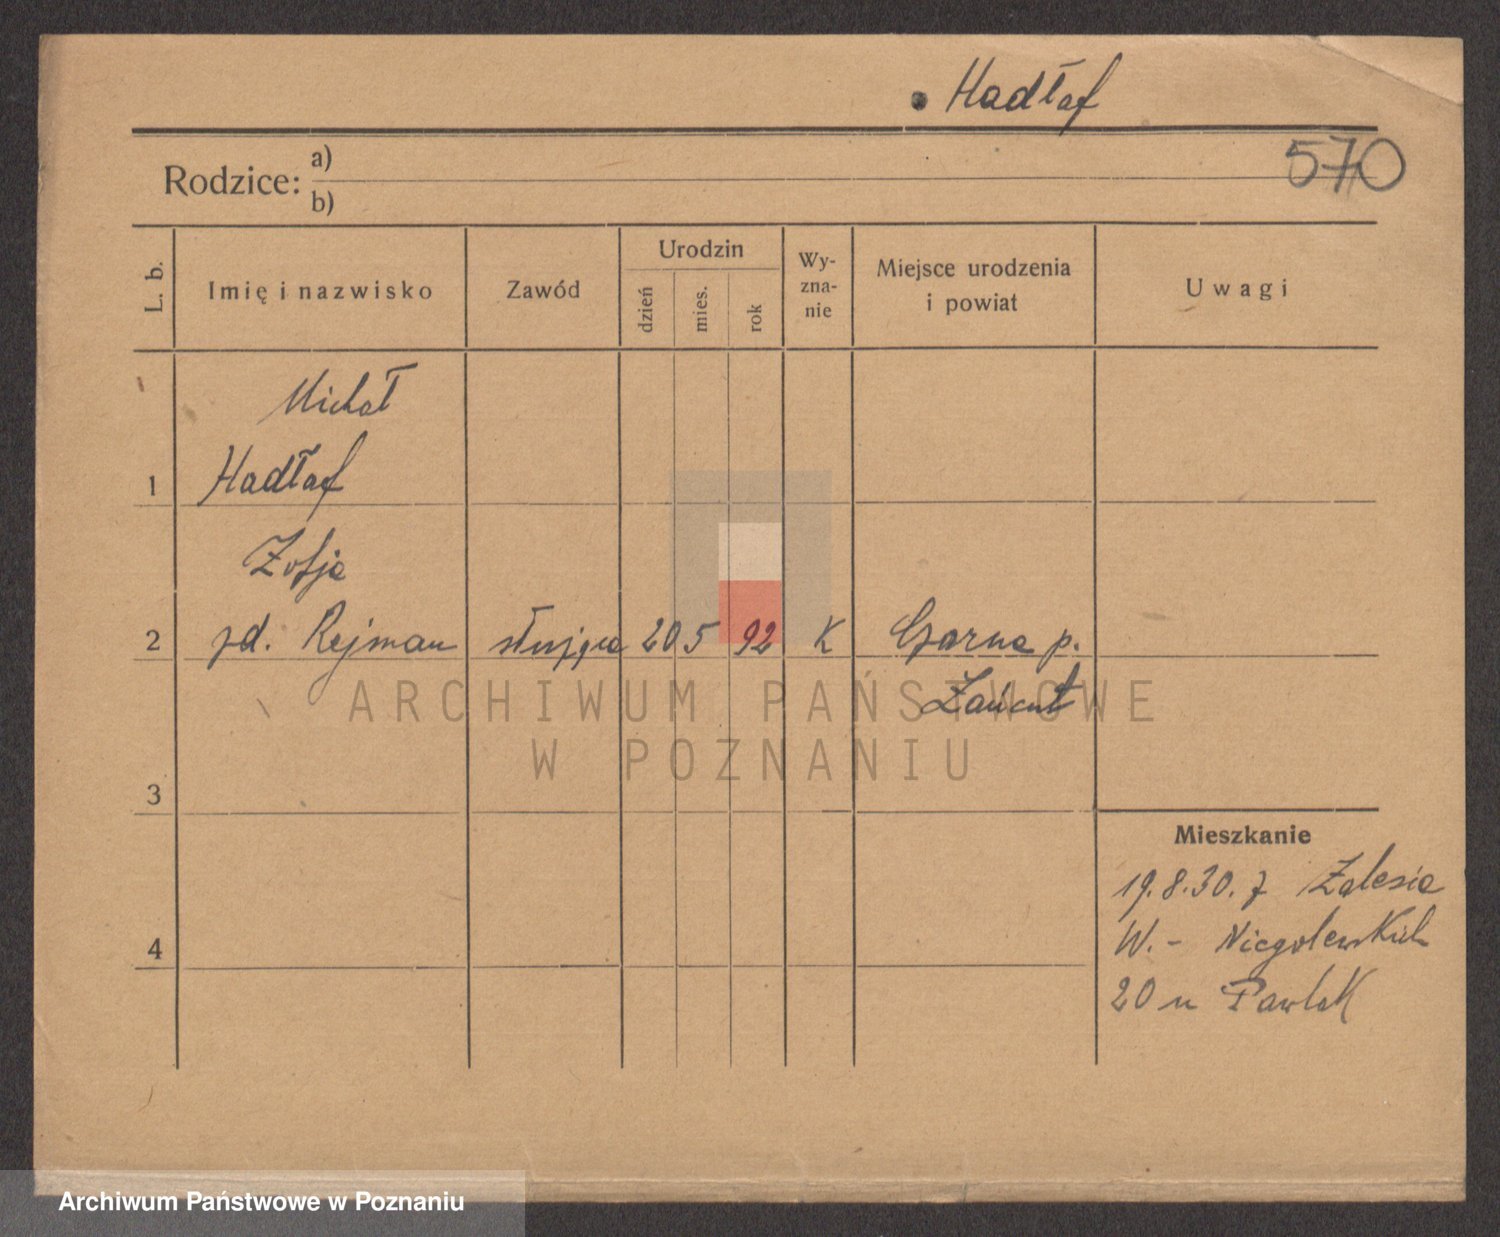 Hadłaf
570
Rodzice:
a)
b)
L. b.
Imię i nazwisko
Zawód
Urodzin
dzień
mies.
rok
Wy-
zna-
nie
Miejsce urodzenia
i powiat
Uwagi
Michał
1 Hadłaf
Zofja
2 zd. Rejman służąca 20 5 92 K Czarna p.
Łańcut
ARCHIWUM PAŃSTWOWE
W POZNANIU
3
Mieszkanie
19.8.30. z Zalesia
W.- Niegolewskich
4
20 u Pawlak
Archiwum Państwowe w Poznaniu